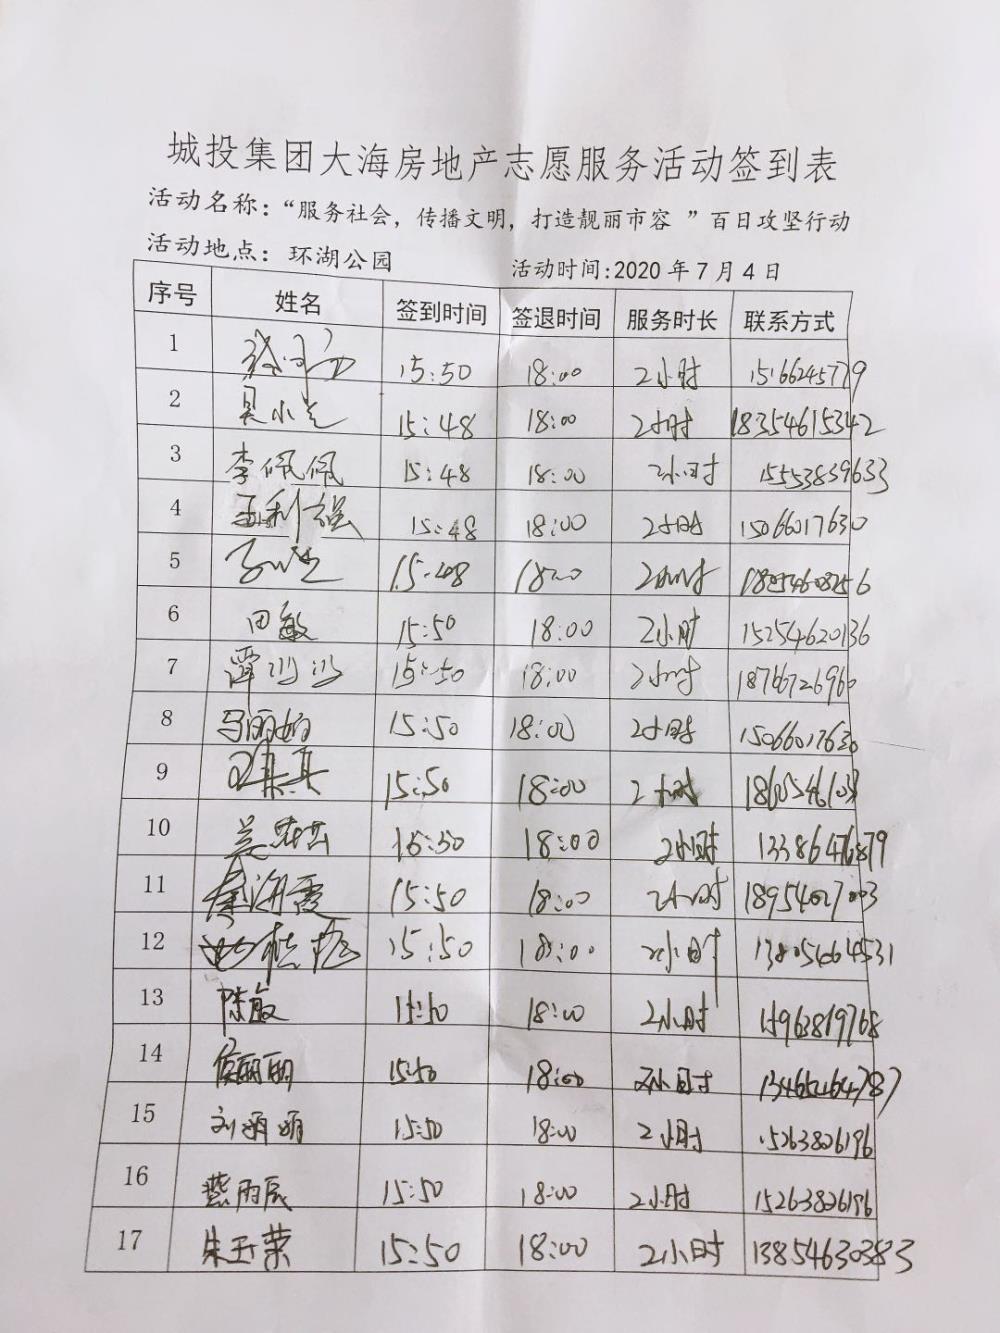 城投集团大海房地产志愿服务活动签到表
活动名称：“服务社会，传播文明，打造靓丽市容 ”百日攻坚行动
活动地点：环湖公园 活动时间:2020 年 7 月 4 日
序号 姓名 签到时间 签退时间 服务时长 联系方式
1 15:50 18:00 2小时
2 15:48 18:00 2小时 18354615342
3 李佩佩 15:48 18:00 2小时 15553839633
4 王利强 15:48 18:00 2小时 15066017630
5 15:48 18:00 2小时
6 田敏 15:50 18:00 2小时 15254620136
7 15:50 18:00 2小时 18766726960
8 马丽娟 15:50 18:00 2小时 15066017630
9 15:50 18:00 2小时
10 15:50 18:00 2小时 13386476879
11 秦湖霞 15:50 18:00 2小时
12 15:50 18:00 2小时 13805464531
13 陈敏 15:50 18:00 2小时 15963819768
14 侯丽丽 15:50 18:00 2小时 13465464787
15 刘娟娟 15:50 18:00 2小时 15263826196
16 燕雨辰 15:50 18:00 2小时 15263826196
17 朱玉荣 15:50 18:00 2小时 13854630383